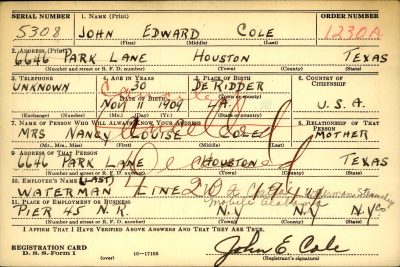 SERIAL NUMBER 1. NAME (Print) ORDER NUMBER
5308 JOHN EDWARD COLE 1230A
(First) (Middle) (Last)
2. ADDRESS (Print)
6646 PARK LANE HOUSTON TEXAS
(Number and street or R. F. D. number) (Town) (County) (State)
3. TELEPHONE 4. AGE IN YEARS 5. PLACE OF BIRTH 6. COUNTRY OF CITIZENSHIP
UNKNOWN 30 DE RIDDER
DATE OF BIRTH (Town or county)
NOV 1 1909 LA. U.S.A.
(Exchange) (Number) (Mo.) (Day) (Yr.) (State or country)
7. NAME OF PERSON WHO WILL ALWAYS KNOW YOUR ADDRESS 8. RELATIONSHIP OF THAT PERSON
MRS NANCY LOUISE COLE MOTHER
(Mr., Mrs., Miss) (First) (Middle) (Last)
9. ADDRESS OF THAT PERSON
6646 PARK LANE HOUSTON TEXAS
(Number and street or R. F. D. number) (Town) (County) (State)
10. EMPLOYER'S NAME (LAST)
WATERMAN LINE
Mobile Alabama
11. PLACE OF EMPLOYMENT OR BUSINESS
PIER 45 N.R. N.Y N.Y N.Y
(Number and street or R. F. D. number) (Town) (County) (State)
I AFFIRM THAT I HAVE VERIFIED ABOVE ANSWERS AND THAT THEY ARE TRUE.
REGISTRATION CARD
D. S. S. Form 1 (over) 16—17105 John E. Cole
(Registrant's signature)
Cancelled
Deceased